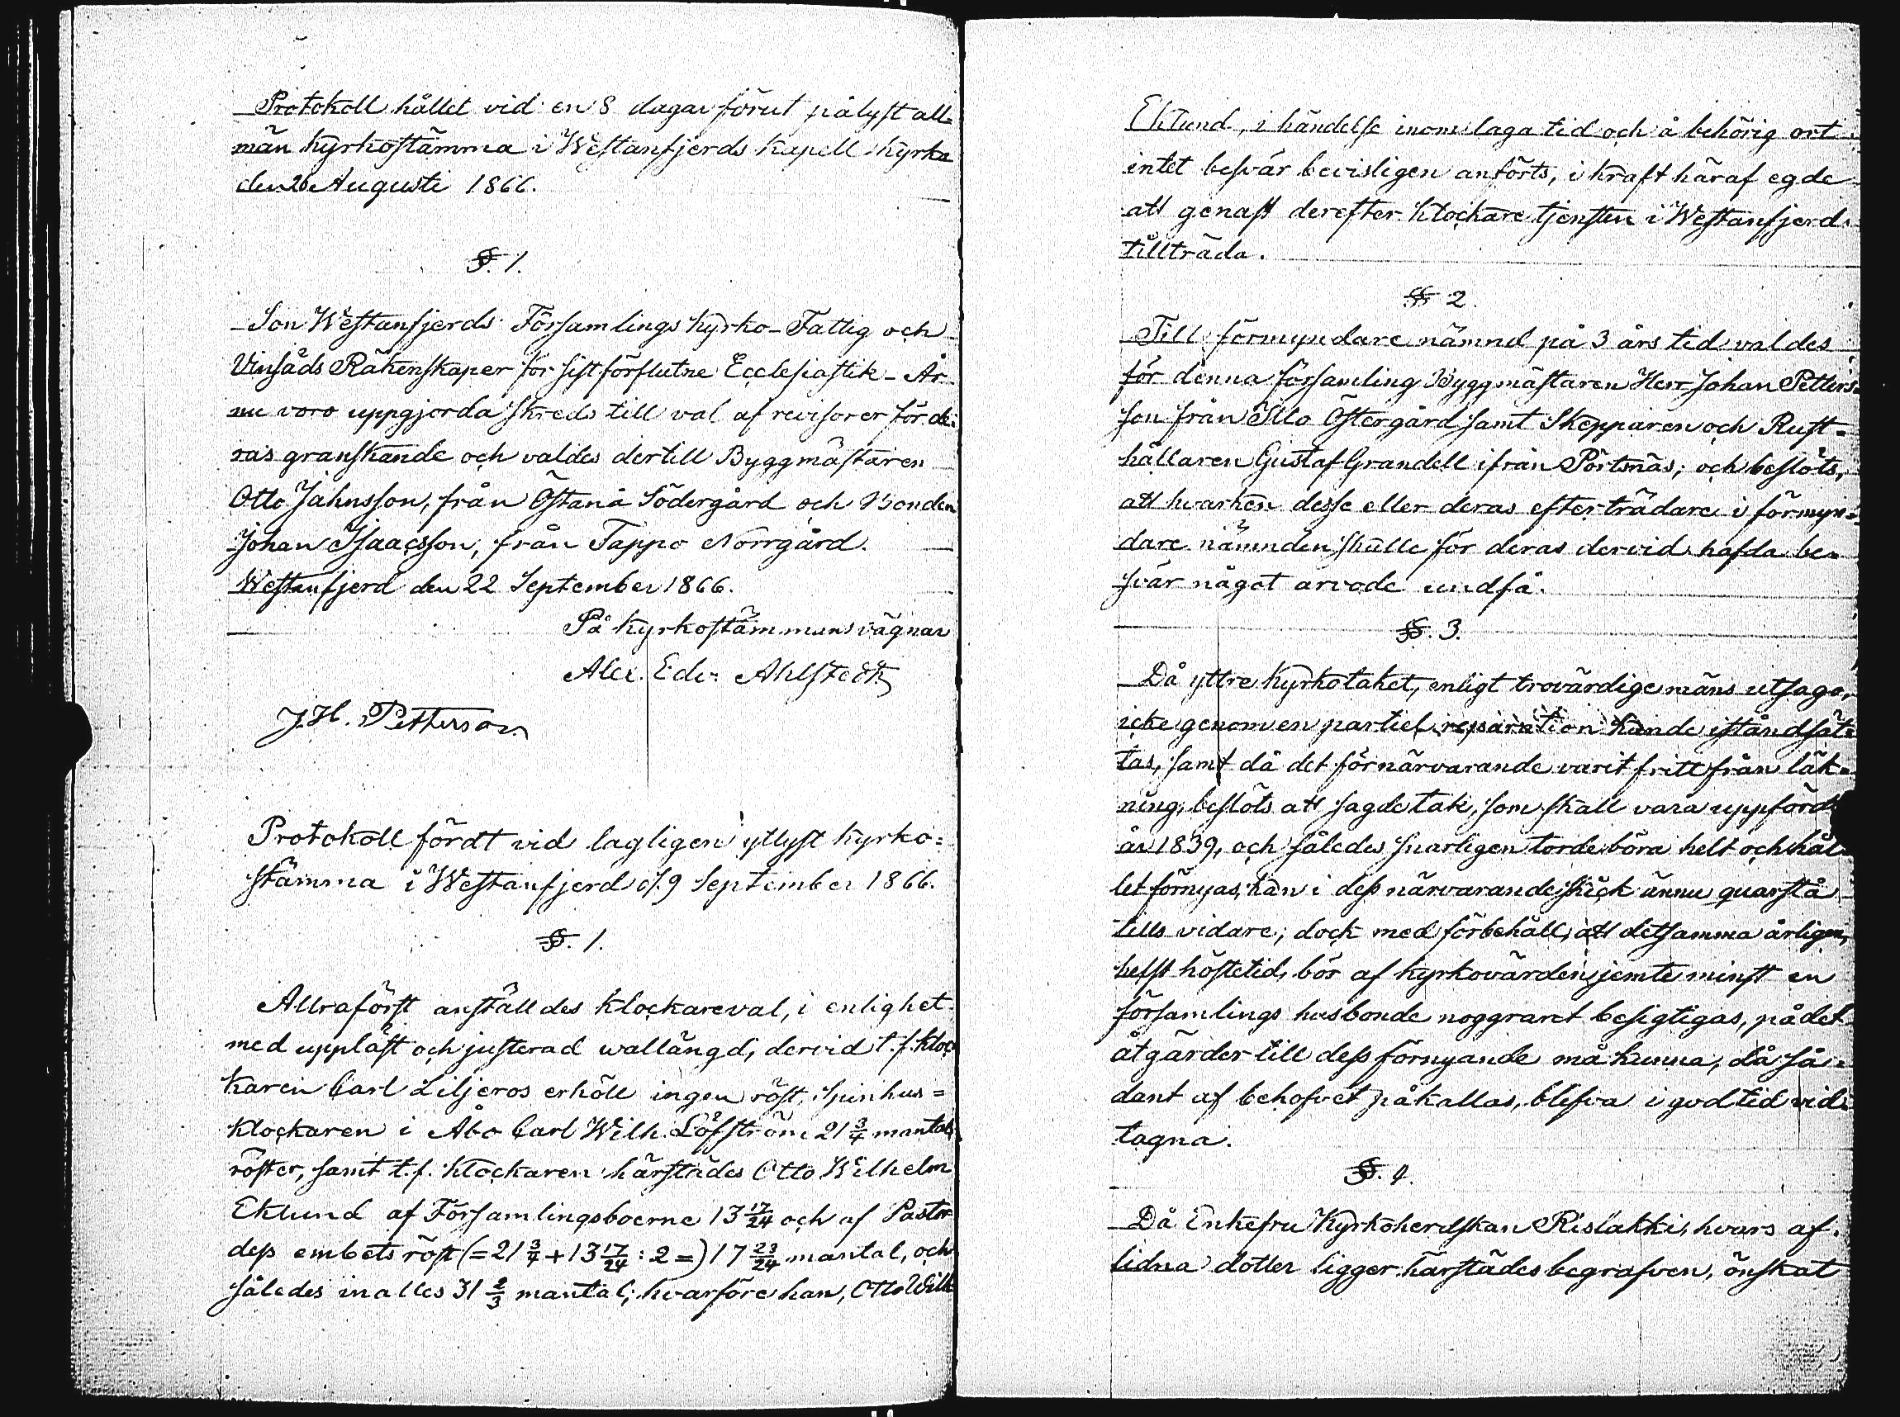 Protokoll hållet vid en 8 dagar förut pålyst all-
män Kyrkostämma i Westanfjerds Kapell Kyrka
den 26 Augusti 1866.
§. 1.
Son Westanfjerds Församlings Kyrko- Fattig och
Vinsåds Räkenskaper för sistförflutne Ecclesiastik-År
nu voro uppgjorda skreds till val af revisorer för de-
ras granskande och valdes dertill Byggmästaren
Otto Jahnsson, från Östanå Södergård och Bonden
Johan Isaacsson, från Tappo Norrgård.
Westanfjerd den 22 September 1866.
På Kyrkostämmans vägnar
Alex. Edv. Ahlstedt
J.H. Petterson
Protokoll fördt vid lagligen utlyst Kyrko=
stämma i Westanfjerd d. 9 September 1866.
§. 1.
Allraförst anställdes Klockareval, i enlighet
med uppläst och justerad wallängd, dervid t.f. Kloc
karen Carl Liljeros erhöll ingen röst, Spinhus=
klockaren i Åbo Carl Wilh. Löfström 21 3/4 mantals
röster, samt t.f. Klockaren härstädes Otto Wilhelm
Eklund af Församlingsboerne 13 17/24 och af Pastor
dess embets röst (=21 3/4 + 13 17/24 : 2 =) 17 23/24 mantal, och
således inalles 31 2/3 mantal; hvarföre han, Otto Wilh
Eklund, i händelse inom laga tid och å behörig ort
intet besvär bevisligen anförts, i kraft häraf egde
att genast derefter Klockare tjensten i Westanfjerd
tillträda.
§ 2.
Till förmyndare nämnd på 3 års tid valdes
för denna församling Byggmästaren Herr Johan Petters-
son från Illo Östergård samt Skepparen och Rust=
hållaren Gustaf Grandell ifrån Pörtsnäs; och beslöts,
att hvarken desse eller deras efterträdare i förmyn=
dare nämnden skulle för deras dervid hafda be=
svär något arvode undfå.
§. 3.
Då yttre Kyrkotaket, enligt trovärdige mäns utsago,
icke genom en partiel reparation kunde iståndsät=
tas, samt då det förnärvarande varit fritt från läk=
ning, beslöts att sagde tak, som skall vara uppfördt
år 1839, och således snarligen torde böra helt och hål
let förnyas, kan i dess närvarande skick ännu quarstå
tills vidare; dock med förbehåll, att detsamma årligen,
helst höstetid, bör af Kyrkovärden, jemte minst en
församlings husbonde noggrant besigtigas, på det
åtgärder till dess förnyande må kunna, då så=
dant af behofvet påkallas, blifva i god tid vid-
tagna.
§. 4.
Då Enkefru Kyrkoherdskan Rislakki, hvars af-
lidna dotter ligger härstädes begrafven, önskat